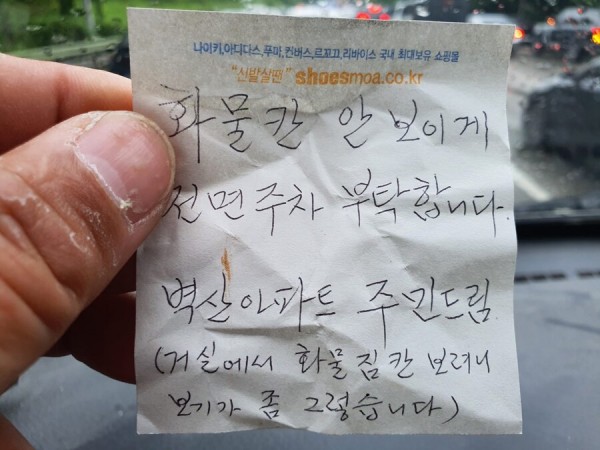 나이키,아디다스,푸마,컨버스,르꼬끄,리바이스 국내 최대보유 쇼핑몰
"신발살땐" shoesmoa.co.kr
화물칸 안 보이게
전면주차 부탁합니다.
벽산아파트 주민드림
(거실에서 화물짐칸 보려니
보기가 좀 그렇습니다)